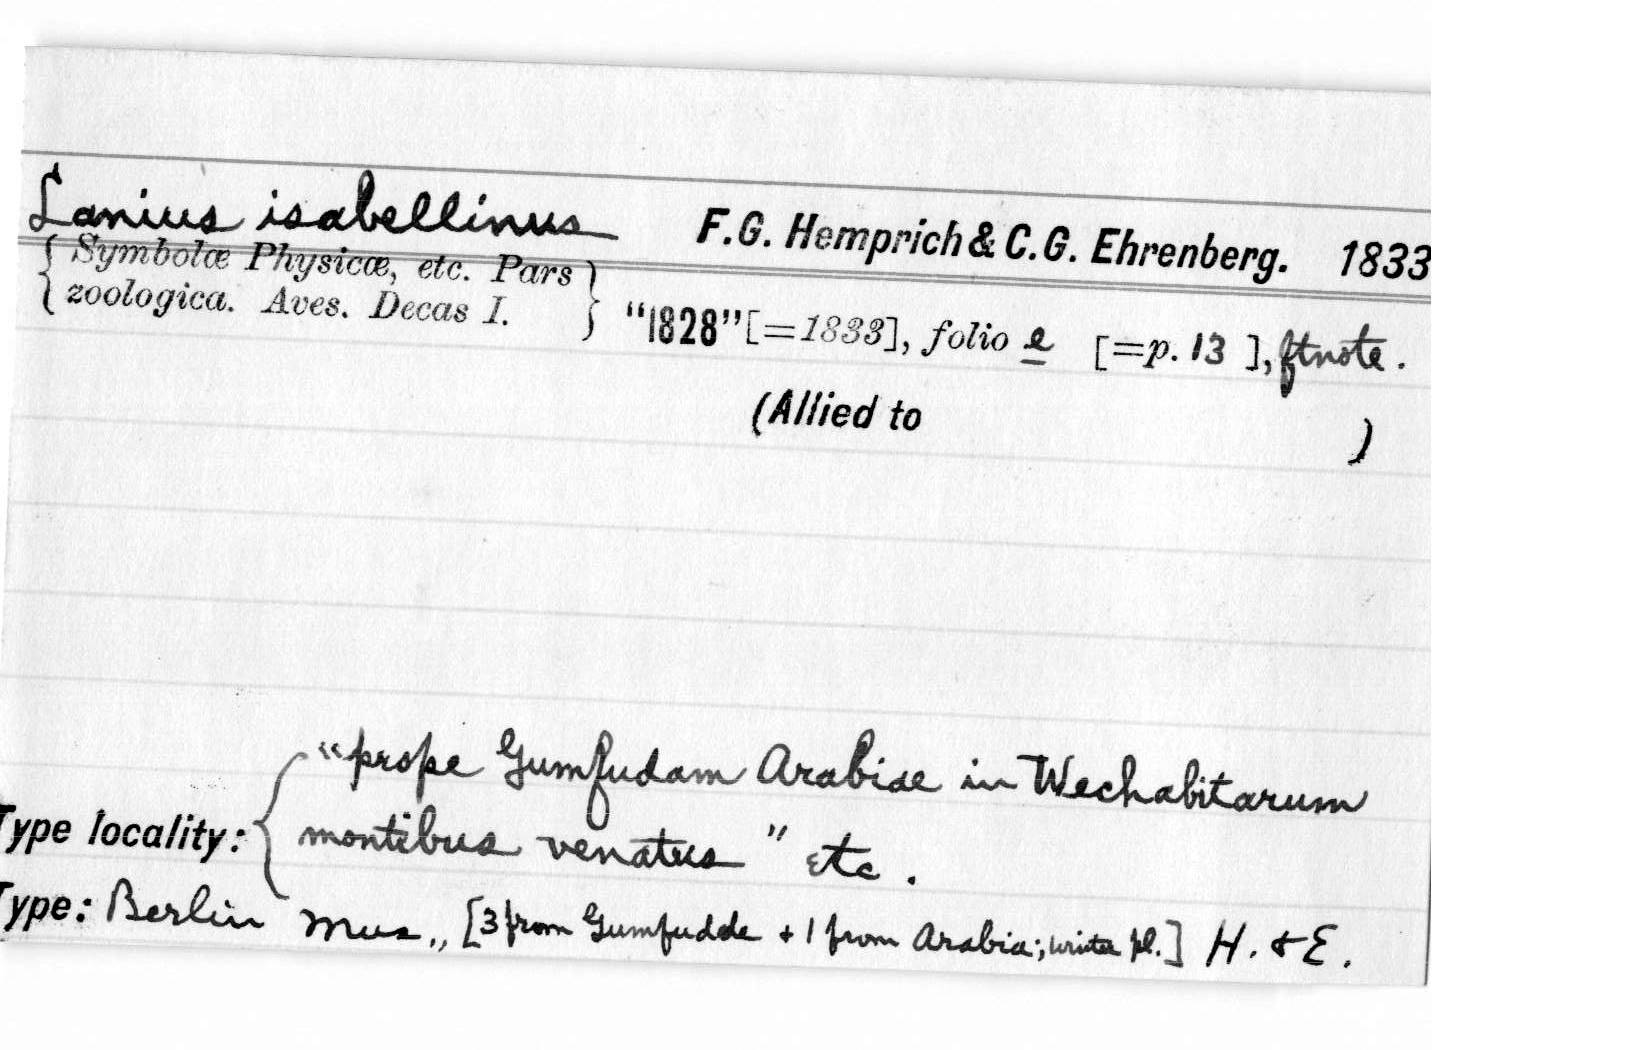 Lanius isabellinus F.G. Hemprich & C.G. Ehrenberg. 1833
{ Symbolæ Physicæ, etc. Pars
zoologica. Aves. Decas I. } "1828" [=1833], folio e [=p. 13 ], ftnote.
(Allied to )
"prope Gumfudam Arabiae in Wechabitarum
Type locality: { montibus venatus" etc.
Type: Berlin Mus., [3 from Gumfudde + 1 from Arabia; winter pl.] H. & E.